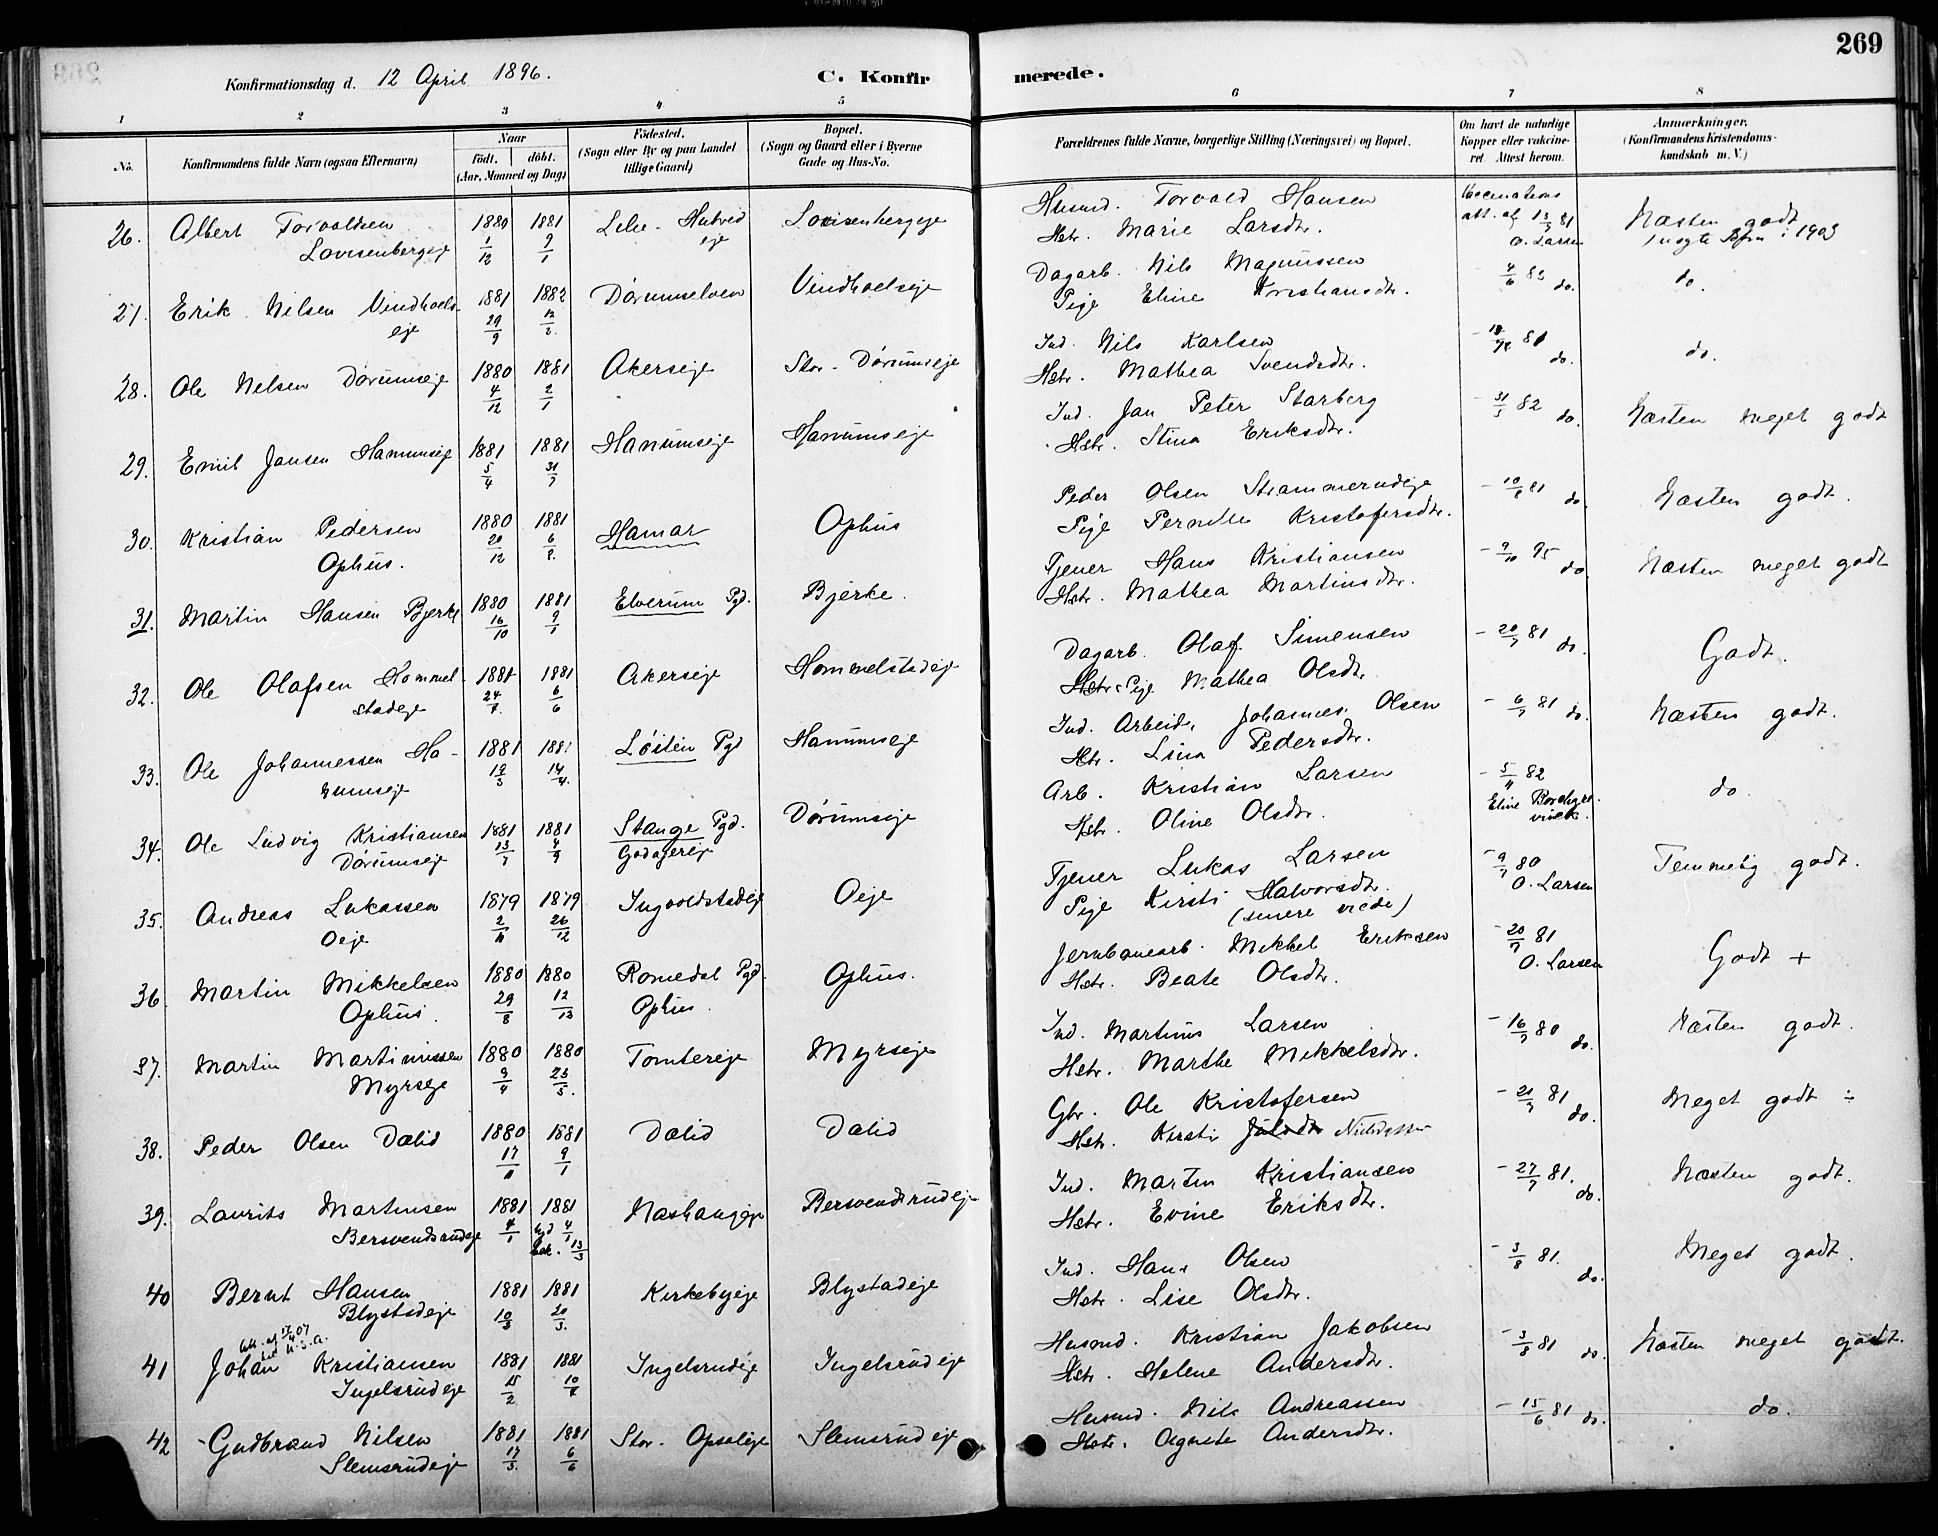 269
Konfirmationsdag d. 12 April 1896.
C. Konfirmerede.
1 2 3 4 5 6 7 8
No.
Konfirmandens fulde Navn (ogsaa Efternavn)
Naar
födt. döbt.
(Aar, Maaned og Dag)
Födested.
(Sogn eller By og paa Landet
tillige Gaard)
Bopæl.
(Sogn og Gaard eller i Byerne
Gade og Hus-No.
Forældrenes fulde Navne, borgerlige Stilling (Næringsvei) og Bopæl.
Om havt de naturlige
Kopper eller vakcine-
ret. Attest herom.
Anmærkninger.
(Konfirmandens Kristendoms-
kundskab m. V.)
26. Albert Torvaldsen 1880 1881 Lille-Hubred Lovisenbergeje Husmd. Torvald Hansen Vaccinations
Lovisenbergeje 1/12 9/1 eje Hstr. Marie Larsdtr. att. af 13/9 81 O. Larsen Næsten godt
i 1903
27. Erik Nilsen Vindhoels- 1881 1882 Dørumselven Vindhoelseje Dagarb. Nils Magnussen 4/6 83 do. do.
eje 29/9 12/2 Pige Eline Kristiansdtr.
28. Ole Nilsen Dørumseje 1880 1881 Akerseje Stor-Dørumseje Ind. Nils Karlsen 81 do. do.
4/12 2/1 Hstr. Mathea Svendsdtr.
29. Emil Jansen Hanumseje 1881 1881 Hanumseje Hanumseje Ind. Jan Peter Starberg 31/5 82 do. Næsten meget godt
5/4 31/7 Hstr. Stina Eriksdtr.
30. Kristian Pedersen 1880 1881 Hamar Ophus Peder Olsen Strammerudeje 10/8 81 do. Næsten godt.
Ophus. 20/12 6/2 Pige Pernille Kristofersdtr.
31. Martin Hansen Bjerke 1880 1881 Elverum Pgd. Bjerke. Tjener Hans Kristiansen 9/10 95 do. Næsten meget godt
16/10 9/1 Hstr. Mathea Martinsdtr.
32. Ole Olafsen Hommel- 1881 1881 Akerseje Hommelstadeje Dagarb. Olaf Simensen 20/7 81 do. Godt.
stadeje 6/6 Pige Mathea Olsdtr.
33. Ole Johannessen Ha- 1881 1881 Løiten Pgd Hanumseje Ind. Arbeidr. Johannes Olsen 6/7 81 do. Næsten godt.
numseje 19/3 14/4 Hstr. Lina Pedersdtr.
34. Ole Ludvig Kristiansen 1881 1881 Stange Pgd. Dørumseje Arb. Kristian Larsen 5/4 82 do.
Dørumseje 13/7 4/9 Godagereje Hstr. Oline Olsdtr. Eline
35. Andreas Lukassen 1879 1879 Ingvoldstadeje Oeje Tjener Lukas Larsen 9/7 80 Temmelig godt.
Oeje 2/11 26/12 Pige Kirsti Halvorsdtr. O. Larsen
(senere viede)
36. Martin Mikkelsen 1880 1880 Romedal Pgd. Ophus. Jernbanearb. Mikkel Eriksen 20/7 81 Godt +
Ophus. 29/8 12/12 Ophus. Hstr. Beate Olsdtr. O. Larsen
37. Martin Martinussen 1880 1880 Tomtereje Myrseje Ind. Martinus Larsen 16/7 80 do. Næsten godt.
Myrseje 9/4 23/5. Hstr. Marthe Mikkelsdtr.
38. Peder Olsen Dælid 1880 1881 Dælid Dælid Gbr. Ole Kristofersen 20/7 81 do. Meget godt ÷
17/11 9/1 Hstr. Kirsti
39. Laurits Martinsen 1881 1881 Nashaugeje Bersvendsrudeje Ind. Martin Kristiansen 27/7 81. do. Næsten godt.
Bersvendsrudeje 4/1 hjd 4/1 bek. 13/3 Hstr. Evine Eriksdtr.
40 Bernt Hansen 1881 1881 Kirkebyeje Blystadeje Ind. Hans Olsen 3/8 81. do. Meget godt.
Blystadeje 10/3 20/3. Hstr. Lise Olsdtr.
att. af 17/4 07
U.S.A.
41 Johan Kristiansen 1881 1881 Ingelsrudeje Ingelsrudeje Husmd. Kristian Jakobsen 3/8 81 do. Næsten meget godt.
Ingelsrudeje 15/2 Hstr. Helene Andersdtr.
42 Gudbrand Nilsen 1881 1881 Stor-Opsaleje Slemsrudeje Husmd. Nils Andreassen 15/6 81 do. do.
Slemsrudeje 17/3. 6/6 Hstr. Agnete Andersdtr.